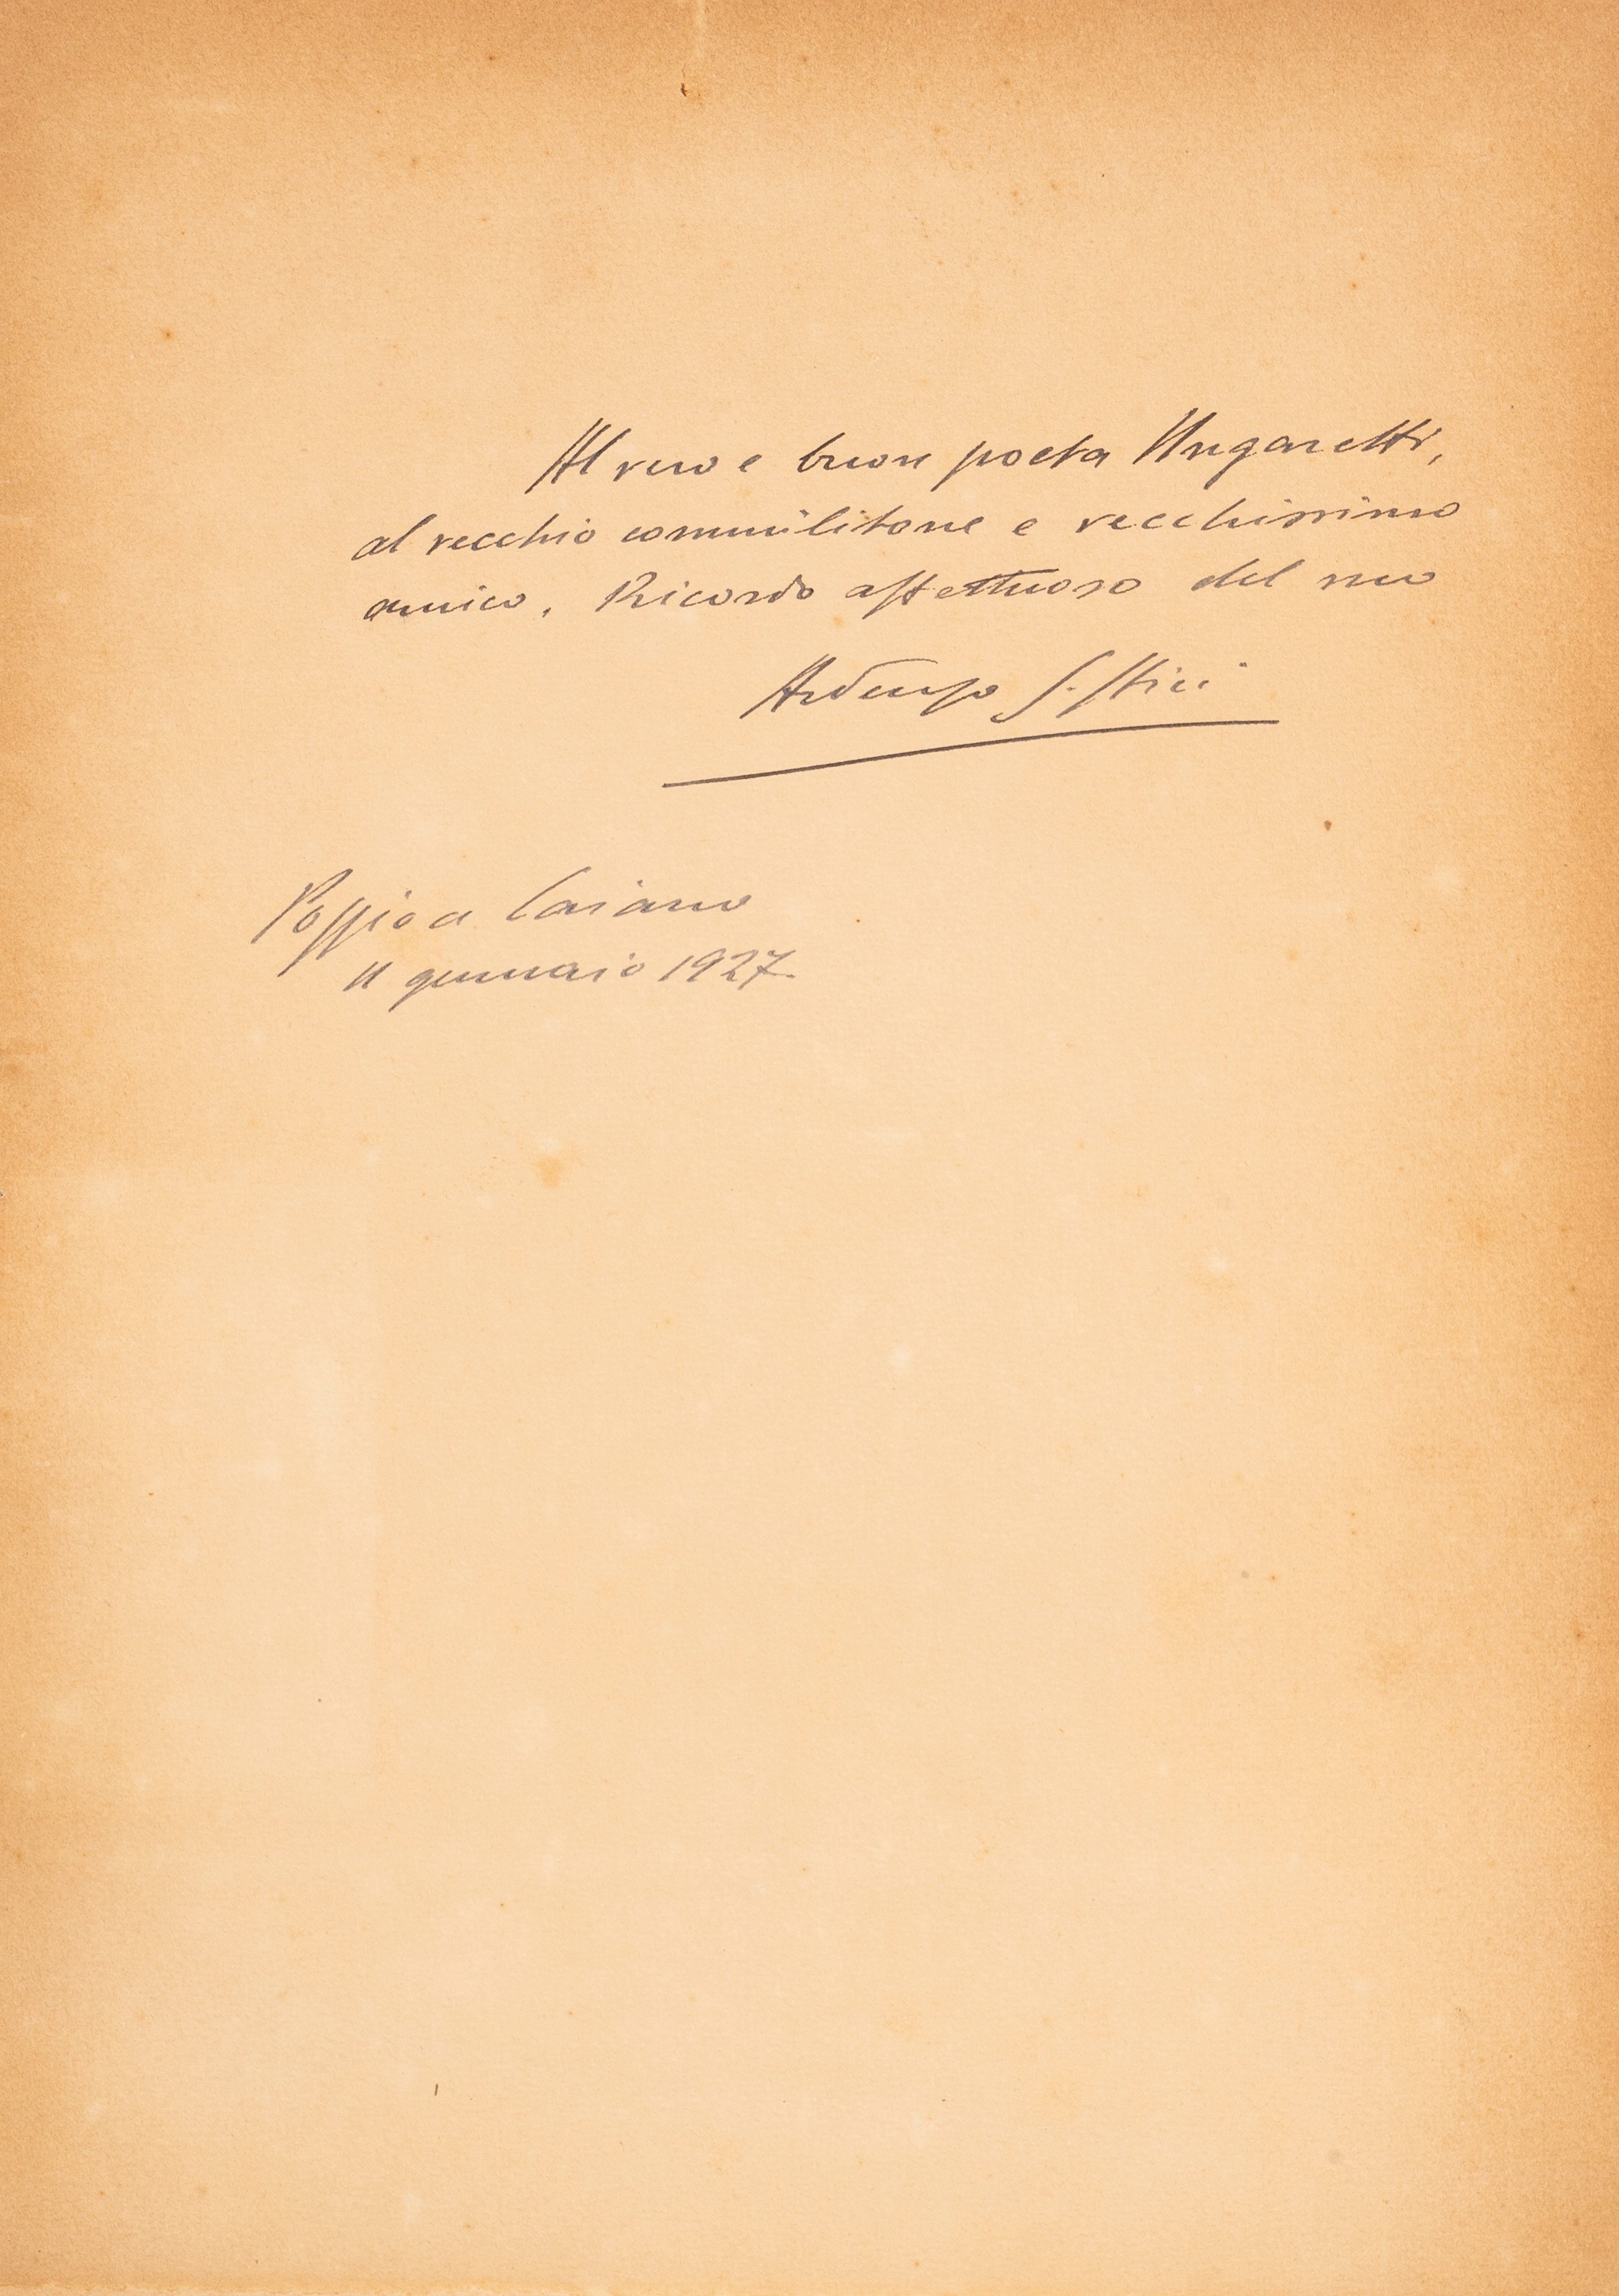 Al vero e buon poeta Ungaretti,
al vecchio commilitone e vecchissimo
amico. Ricordo affettuoso del suo
Ardengo Soffici
Poggio a Caiano
11 gennaio 1927.